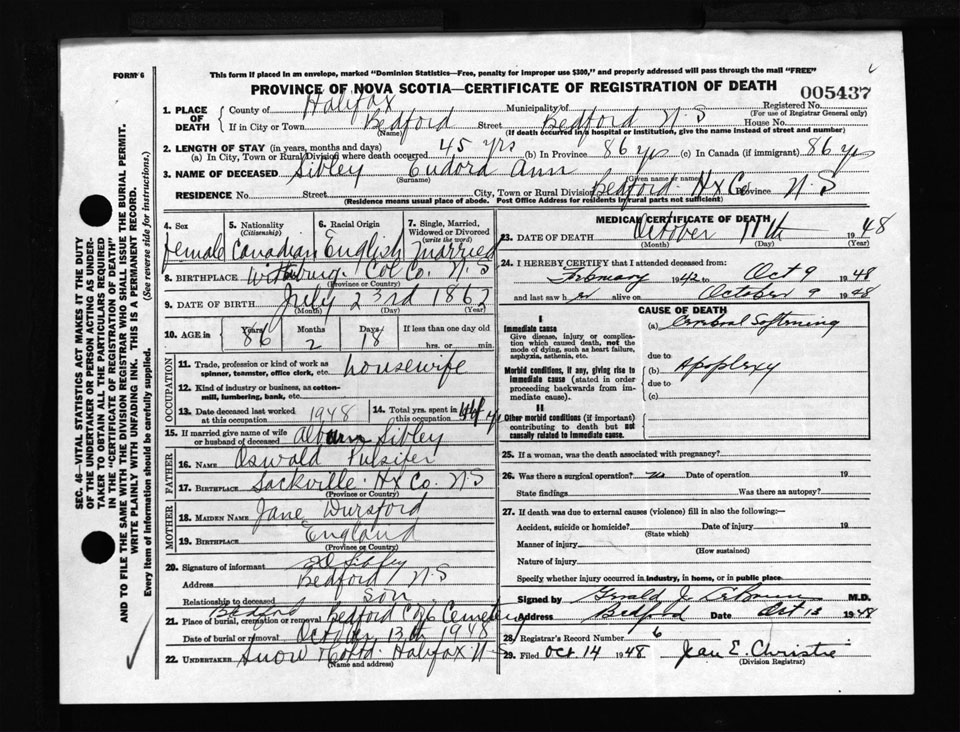 FORM 6
This form if placed in an envelope, marked "Dominion Statistics—Free, penalty for improper use $300," and properly addressed will pass through the mail "FREE"
PROVINCE OF NOVA SCOTIA—CERTIFICATE OF REGISTRATION OF DEATH
005437
1. PLACE OF DEATH
County of Halifax Municipality of Registered No.
(For use of Registrar General only)
If in City or Town Bedford Street Bedford N.S House No.
(Name) (If death occurred in a hospital or institution, give the name instead of street and number)
2. LENGTH OF STAY (in years, months and days)
(a) In City, Town or Rural Division where death occurred 45 yrs (b) In Province 86 yrs (c) In Canada (if immigrant) 86 yrs
3. NAME OF DECEASED Sibley Eudora Ann
(Surname) (Given name or names)
RESIDENCE No. Street City, Town or Rural Division Bedford Hx Co Province N.S
(Residence means usual place of abode. Post Office Address for residents in rural parts not sufficient)
4. Sex 5. Nationality (Citizenship) 6. Racial Origin 7. Single, Married, Widowed or Divorced (write the word)
female Canadian English married
8. BIRTHPLACE Col Co. N.S
(Province or Country)
9. DATE OF BIRTH July 23rd 1862
(Month) (Day) (Year)
10. AGE in Years Months Days If less than one day old
86 2 18 hrs. or min.
OCCUPATION
11. Trade, profession or kind of work as spinner, teamster, office clerk, etc. housewife
12. Kind of industry or business, as cotton-mill, lumbering, bank, etc.
13. Date deceased last worked at this occupation 1948 14. Total yrs. spent in this occupation
15. If married give name of wife or husband of deceased Sibley
FATHER
16. NAME Oswald Pulsifer
17. BIRTHPLACE Sackville Hx Co. N.S
(Province or Country)
MOTHER
18. MAIDEN NAME Jane
19. BIRTHPLACE England
(Province or Country)
20. Signature of informant Sibley
Address Bedford N.S
Relationship to deceased Son
21. Place of burial, cremation or removal Bedford Cemetery
Date of burial or removal October 13th 1948
22. UNDERTAKER Snow & Co Ltd. Halifax N.S
(Name and address)
MEDICAL CERTIFICATE OF DEATH
23. DATE OF DEATH October 11th 1948
(Month) (Day) (Year)
24. I HEREBY CERTIFY that I attended deceased from:
February 1942 to Oct 9 1948
and last saw her alive on October 9 1948
CAUSE OF DEATH
I
Immediate cause
Give disease, injury or complication which caused death, not the mode of dying, such as heart failure, asphyxia, asthenia, etc.
(a) Cerebral Softening
due to
Morbid conditions, if any, giving rise to immediate cause (stated in order proceeding backwards from immediate cause).
(b) Apoplexy
due to
(c)
II
Other morbid conditions (if important) contributing to death but not causally related to immediate cause.
25. If a woman, was the death associated with pregnancy?
26. Was there a surgical operation? no Date of operation 19
State findings Was there an autopsy?
27. If death was due to external causes (violence) fill in also the following:—
Accident, suicide or homicide? Date of injury 19
(State which)
Manner of injury
(How sustained)
Nature of injury
Specify whether injury occurred in industry, in home, or in public place.
Signed by Gerald J. M.D.
Address Bedford Date Oct 13 1948
28. Registrar's Record Number 6
29. Filed Oct. 14 1948 Jean E. Christie
(Division Registrar)
SEC. 46—VITAL STATISTICS ACT MAKES IT THE DUTY
OF THE UNDERTAKER OR PERSON ACTING AS UNDER-
TAKER TO OBTAIN ALL THE PARTICULARS REQUIRED
IN THE "CERTIFICATE OF REGISTRATION OF DEATH"
AND TO FILE THE SAME WITH THE DIVISION REGISTRAR WHO SHALL ISSUE THE BURIAL PERMIT.
WRITE PLAINLY WITH UNFADING INK. THIS IS A PERMANENT RECORD.
Every item of information should be carefully supplied. (See reverse side for instructions.)